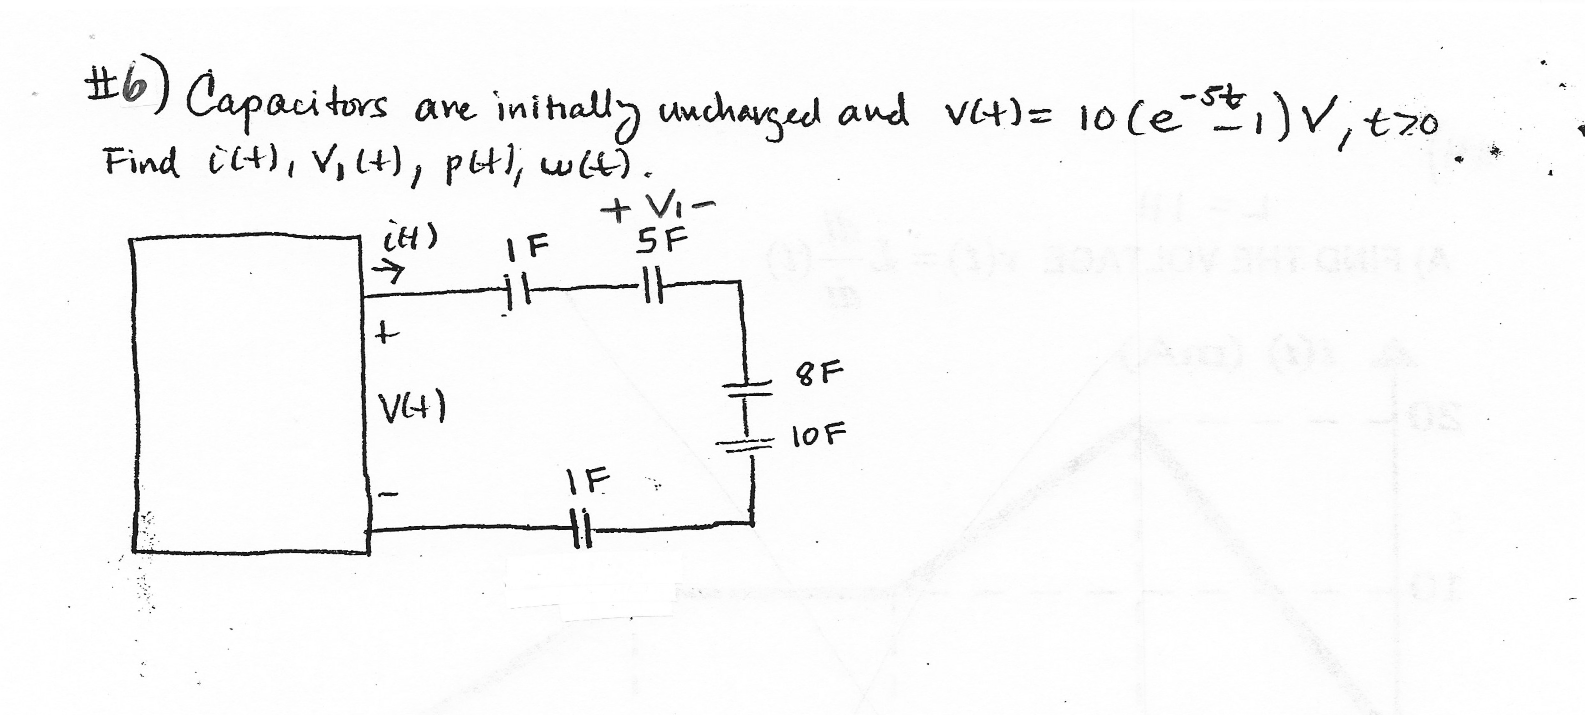 #6) Capacitors are initially uncharged and v(t)= 10(e^-5t - 1)V, t>0
Find i(t), V₁(t), p(t), w(t).
+ V₁ -
i(t)
→
1F
5F
+
V(t)
-
8F
10F
1F